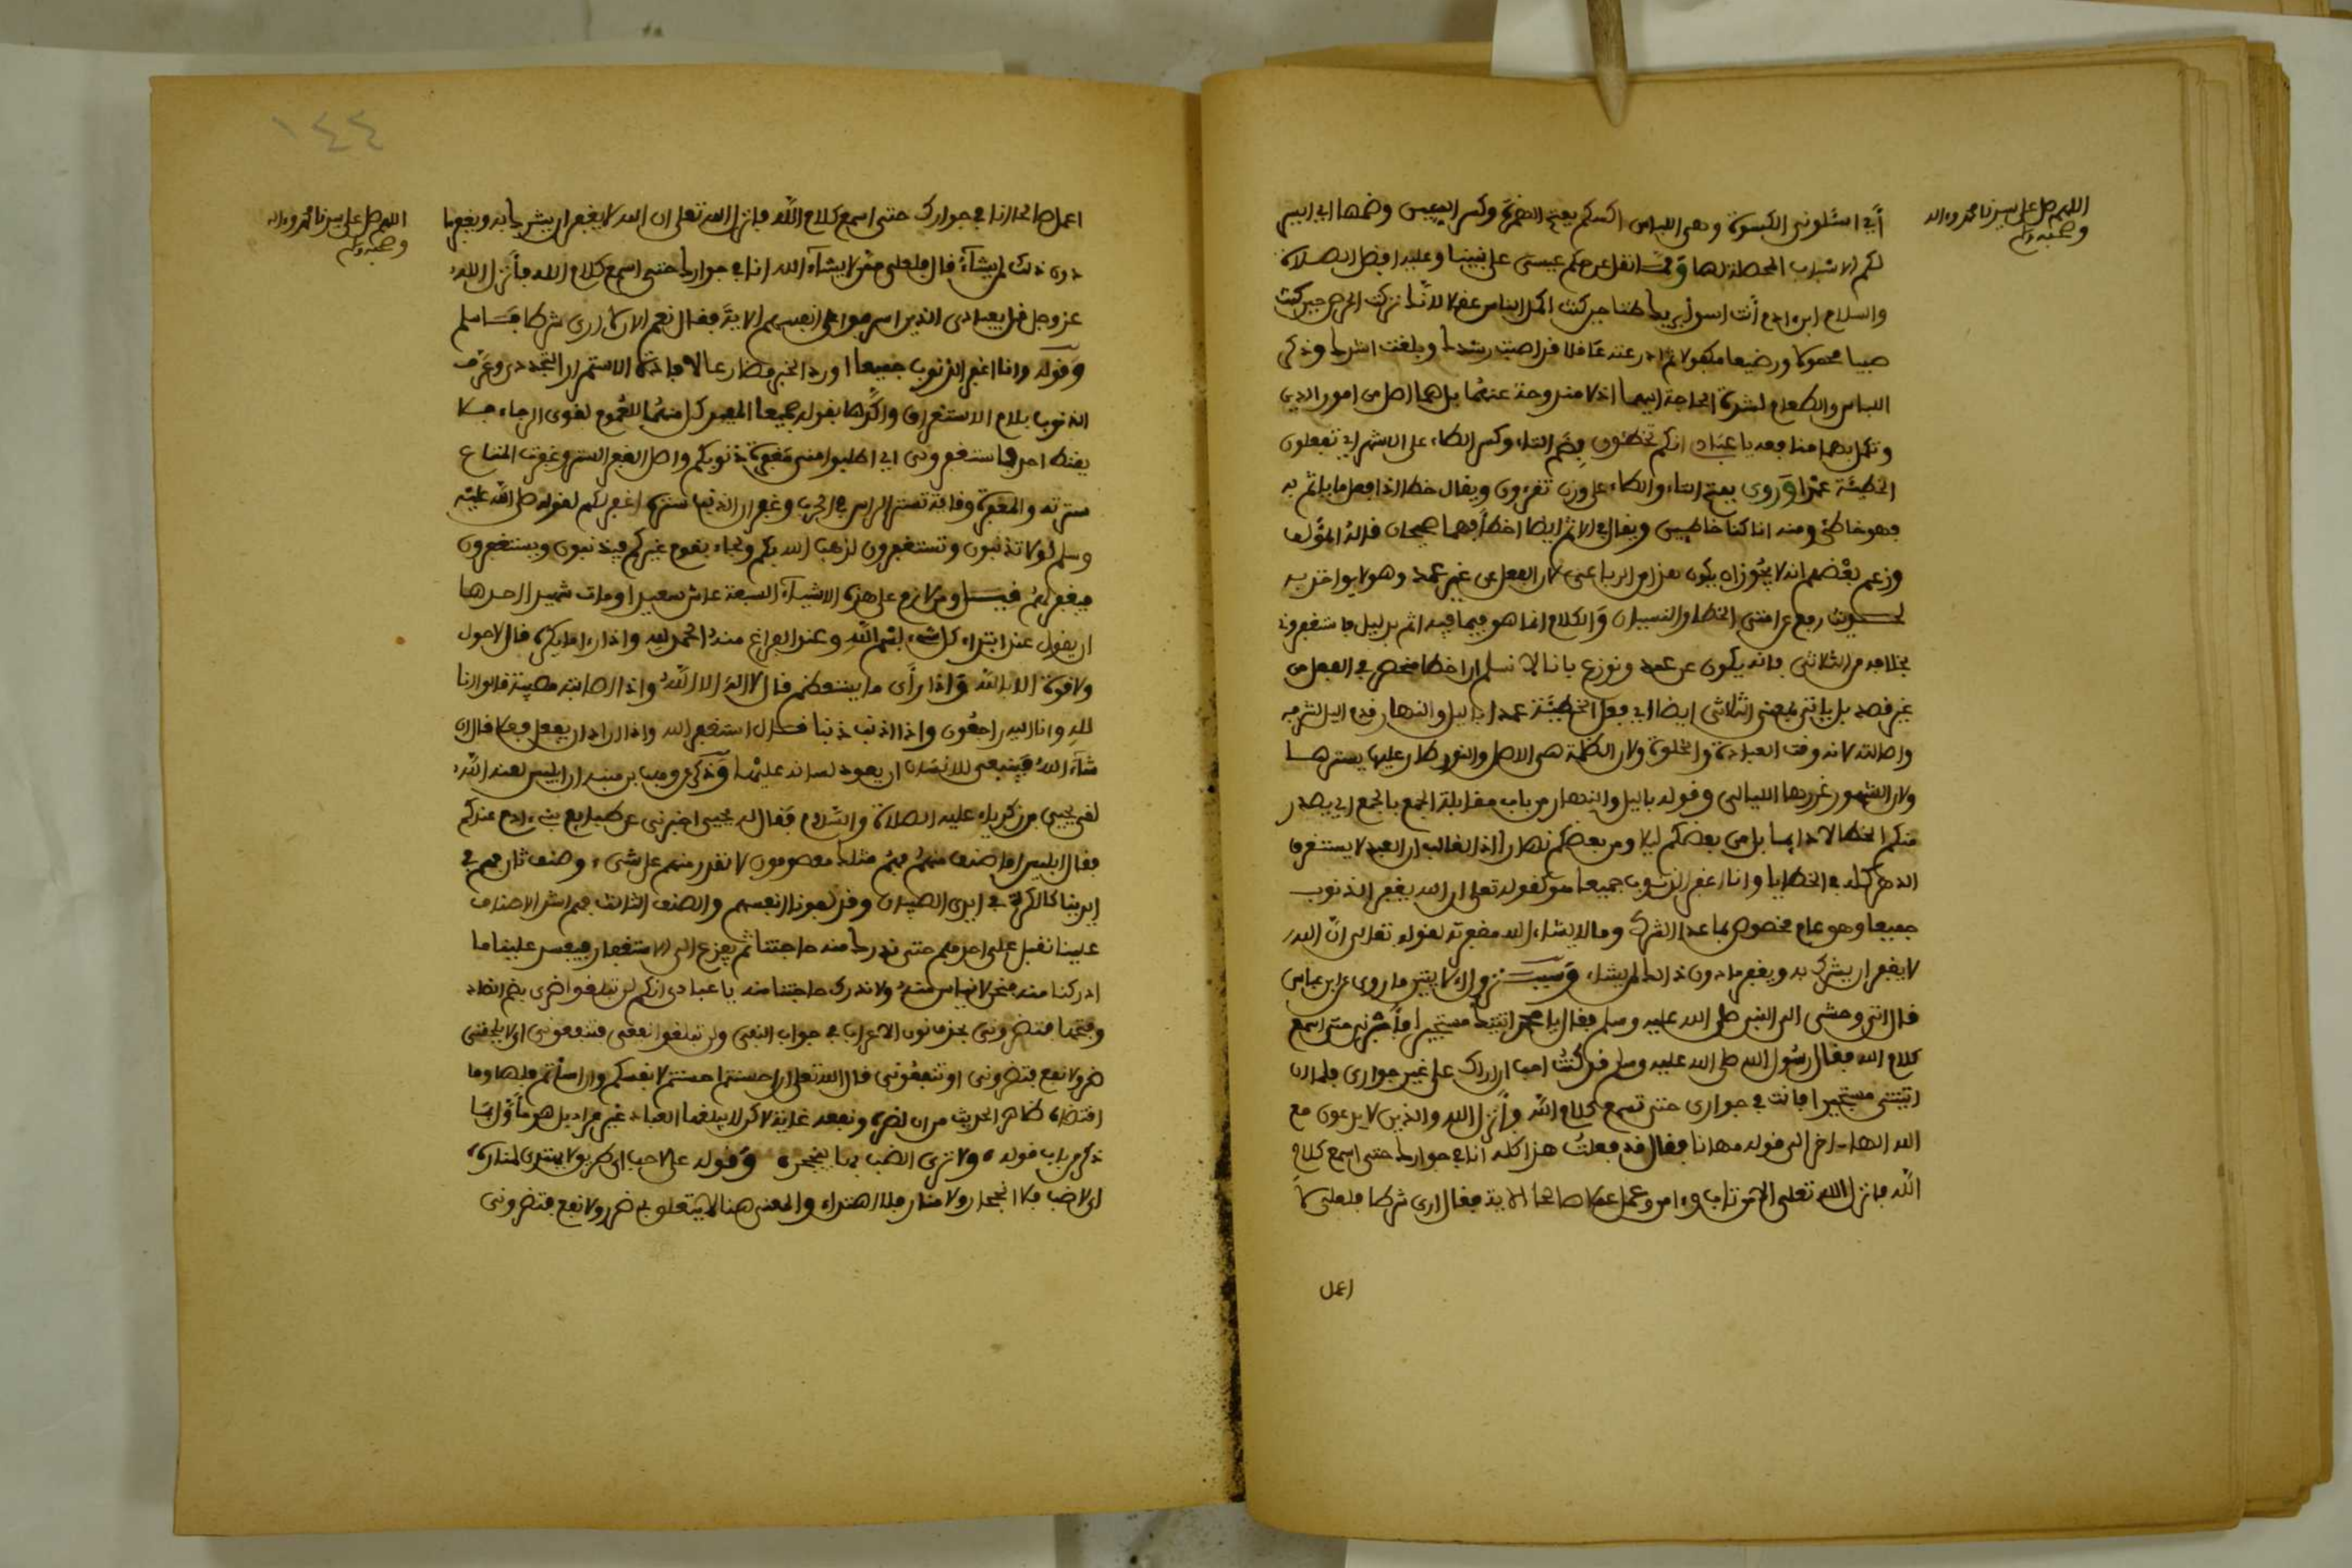 اللهم صل على سيدنا محمد وءاله
وصحبه وسلم
أي اسئلوني الكسوة وهي اللباس اكسكم بفتح الهمزة وكسر السين وضمها أي ايسر
لكم الاسباب المحصلة لها وقد انفل عن حكم عيسى على نبينا وعليه افضل الصلاة
والسلام ابن ءادم أنت اسوأ بربك ظنا حين كنت اكمل الناس عقلا لانك تركت الحرص حين كنت
صبيا محمولا ورضيعا مكفولا ثم ادرعته عاقلا قد اصبت رشدك وبلغت اشدك وذكر
اللباس والطعام لشدة الحاجة اليهما اذ لا مندوحة عنهما بل هما اصل من امور الدين
وتكمل بهما منافعه يا عبادي انكم تخطئون بضم التاء وكسر الطاء على الاشهر أي تفعلون
الخطيئة عمدا وروي بفتح التاء والطاء على وزن تقرءون ويقال خطا اذا فعل ما ياثم به
فهو خاطئ ومنه انا كنا خاطيين ويقال في الاثم ايضا اخطأ فهما صحيحان قاله المؤلف
وزعم بعضهم انه لا يجوز ان يكون هنا من الرباعي لان الفعل عن غير عمد وهو لا يواخذ به
لحديث رفع عن امتي الخطا والنسيان والكلام انما هو فيما فيه اثم بدليل فاستغفروني
بخلافه من الثلاثي فانه يكون عن عمد ونوزع بانا لا نسلم ان اخطا منحصر في الفعل من
غير قصد بل ياتي بمعنى الثلاثي ايضا أي فعل الخطيئة عمدا بالليل والنهار قدم الليل لشرفه
واصالته لانه وقت العبادة والخلوة ولان الظلمة هي الاصل والنور طار عليها يسترها
ولان الشهور غررها الليالي وقوله بالليل والنهار من باب مقابلة الجمع بالجمع أي يصدر
منكم الخطا لا دايما بل من بعضكم ليلا ومن بعضكم نهارا اذ الغالب ان العبد لا يستغرق
الدهر كله في الخطايا وانا اغفر الذنوب جميعا هو كقوله تعلى ان الله يغفر الذنوب
جميعا وهو عام مخصوص بما عدا الشرك وما لا يشاء الله مغفرته لقوله تعلى ان الله
لا يغفر ان يشرك به ويغفر ما دون ذلك لمن يشاء وسبب نزول الايتين ما روي عن ابن عباس
قال اتى وحشي الى النبي صلى الله عليه وسلم فقال يا محمد اتيتك مستجيرا فأجرني حتى اسمع
كلام الله فقال رسول الله صلى الله عليه وسلم قد كنت احب ان اراك على غير جواري فاما اذ
اتيتني مستجيرا فانت في جواري حتى تسمع كلام الله وأنزل الله والذين لا يدعون مع
الله الها ءاخر الى قوله مهانا فقال قد فعلت هذا كله انا في جوارك حتى اسمع كلام
الله فانزل الله تعلى الا من تاب وءامن وعمل عملا صالحا الاية فقال ارى شرطا فلعلي لا
اعمل
١٤٤
اللهم صل على سيدنا محمد وءاله
وصحبه وسلم
اعمل صالحا انا في جوارك حتى اسمع كلام الله فانزل الله تعلى ان الله لا يغفر ان يشرك به ويغفر ما
دون ذلك لمن يشاء قال فلعلي ممن لا يشاء الله انا في جوارك حتى اسمع كلام الله فأنزل الله
عز وجل قل يعبادي الذين اسرفوا على انفسهم الاية فقال نعم الان لا ارى شرطا فاسلم
وقوله وانا اغفر الذنوب جميعا اورد الخبر مضارعا لافادة الاستمرار التجددي وعرف
الذنوب بلام الاستغراق واكدها بقوله جميعا المفيد كل منهما للعموم لقوى الرجاء فلا
يقنط احد فاستغفروني أي اطلبوا مني مغفرة ذنوبكم واصل الغفر الستر وغفرت المتاع
سترته والمغفرة وقاية تستر الراس في الحرب وغفر الذنب ستره اغفر لكم لقوله صلى الله عليه
وسلم لولا تذنبون وتستغفرون لذهب الله بكم ولجاء بقوم غيركم فيذنبون ويستغفرون
فيغفر لهم فيــل ومن لازم على هذه الاشياء السبعة عاش سعيدا ومات شهيدا احدها
ان يقول عند ابتداء كل شيء بسم الله وعند الفراغ منه الحمد لله واذا رءا ما يكره قال لا حول
ولا قوة الا بالله واذا رأى ما يستعظم قال لا اله الا الله واذا اصابته مصيبة قال انا
لله وانا اليه راجعون واذا اذنب ذنبا قال استغفر الله واذا اراد ان يفعل فعلا قال ان
شاء الله فينبغي للانسان ان يعود لسانه عليها وذكر وهب بن منبه ان ابليس لعنه الله
لقي يحيى بن زكرياء عليه الصلاة والسلام فقال له يحيى اخبرني عن طبايع بني ءادم عندكم
فقال ابليس اما صنف منهم فهم مثلك معصومون لا نقدر منهم على شيء وصنف ثان فهم في
ايدينا كالكرة في ايدي الصبيان وقد كفونا انفسهم والصنف الثالث فهم اشد الاصناف
علينا نقبل على احدهم حتى ندرك منه حاجتنا ثم يفزع الى الاستغفار فيفسد علينا ما
ادركنا منه فنحن لا نياس منه ولا ندرك حاجتنا منه يا عبادي انكم لن تبلغوا ضري بضم الضاد
وفتحها فتضروني بحذف نون الاعراب في جواب النفي ولن تبلغوا نفعي فتنفعوني أي لا يلحقني
ضر ولا نفع فتضروني او تنفعوني قال الله تعلى ان احسنتم احسنتم لانفسكم وان اسأتم فلها وما
اقتضاه ظاهر الحديث من ان لضره ونفعه غاية لاكن لا يبلغها العباد غير مراد بل هو مأول بما
ذكر من باب قوله ولا ترى الضب بها ينجحر وقوله على لاحب أي طريق لا يهتدى لمناره
أي لا ضب فلا انجحار ولا منار فلا اهتداء والمعنى هنا لا يتعلق بي ضر ولا نفع فتضروني